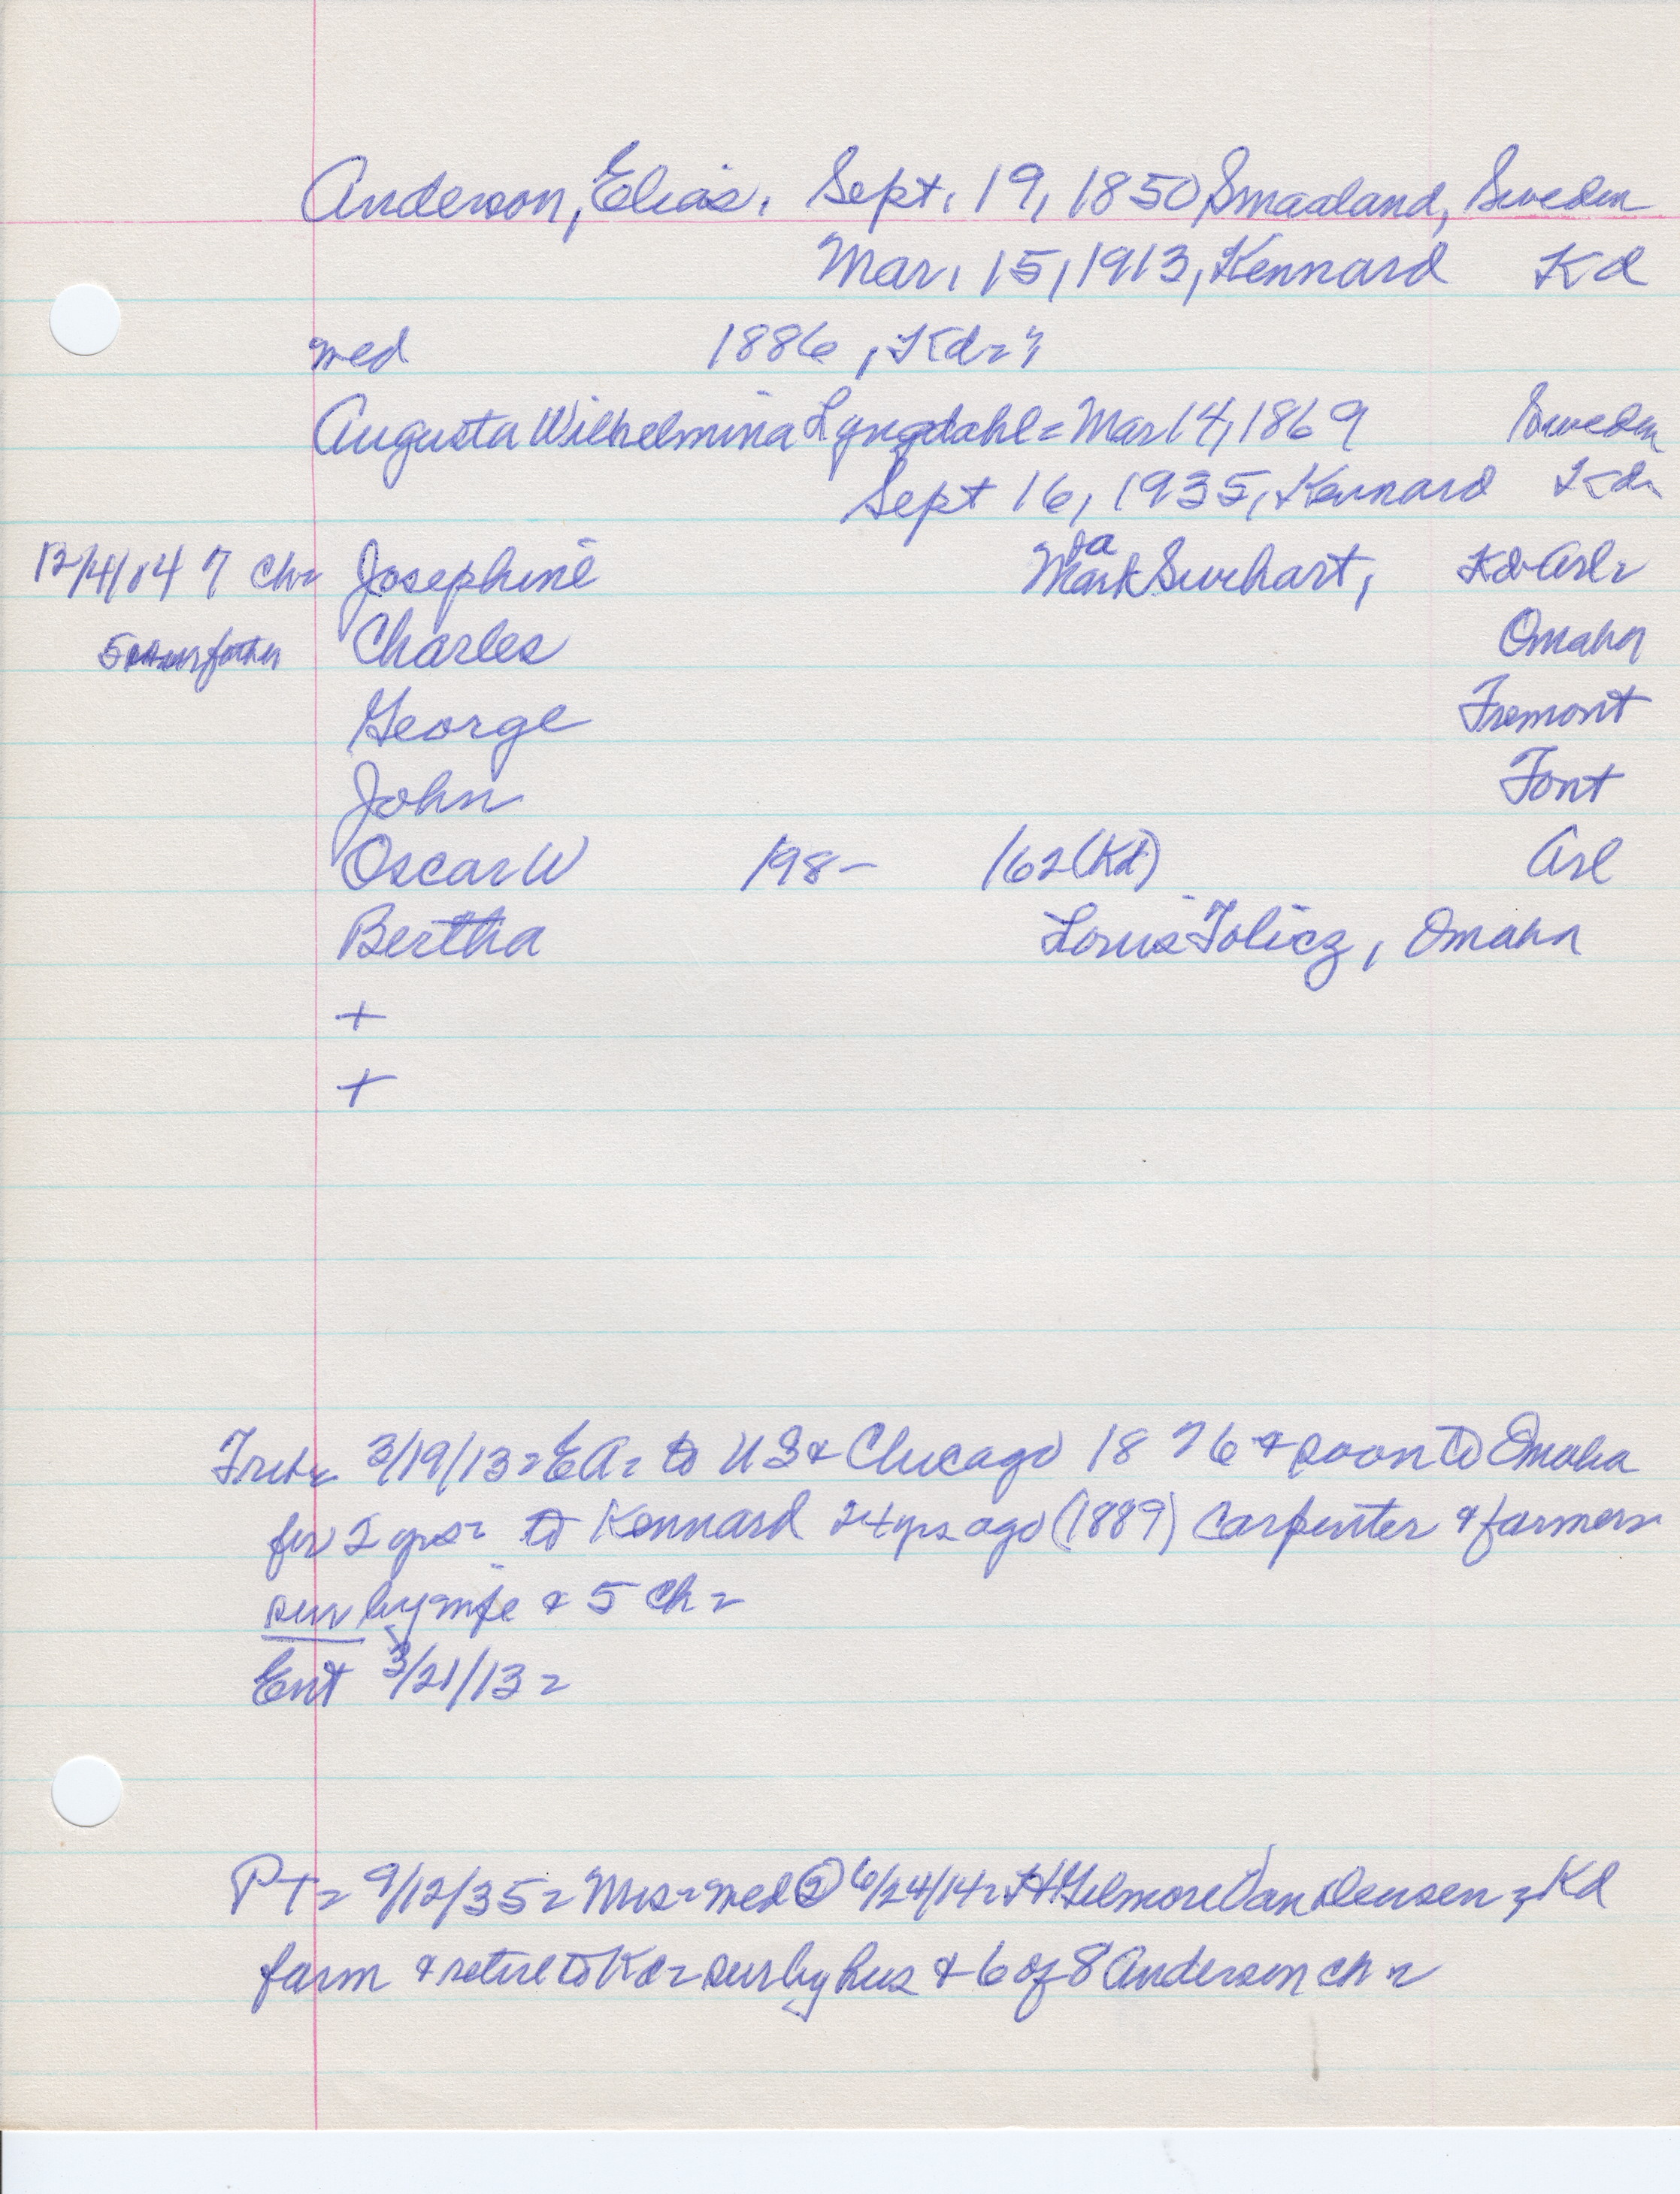 Anderson, Elias, Sept. 19, 1850 Smaaland, Sweden
Mar. 15, 1913, Kennard Kd
med 1886, Kd=?
Augusta Wilhelmina Lyngdahl=Mar 14, 1869 Sweden
Sept 16, 1935, Kennard Kd=
12/4/04 7 Ch= Josephine Mark Swihart, Kd&Arl=
a
5 sur father Charles Omaha
George Fremont
John Font
Oscar W 198- 162(Kd) Arl
Bertha Louis Tolicz, Omaha
+
+
Trib= 3/19/13=EA= to US & Chicago 1876 & soon to Omaha
for 2 yrs= to Kennard 24 yrs ago (1889) Carpenter & farmer=
sur by wife & 5 Ch=
Ent 3/21/13=
PT= 9/12/35= Mrs= med② 6/24/14= Gilmore Van Deusen=Kd
farm & retire to Kd= sur by hus & 6 of 8 Anderson ch=